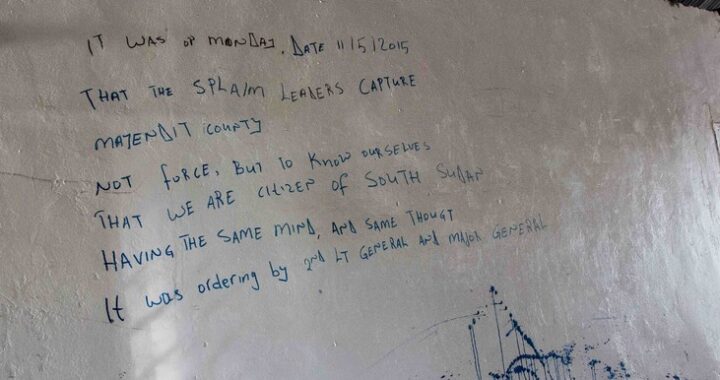 IT WAS OP MONDAY, DATE 11/5/2015
THAT THE SPLA/M LEADERS CAPTURE
MAYENDIT COUNTY
NOT FORCE, BUT TO KNOW OURSELVES
THAT WE ARE CITIZEP OF SOUTH SUDAP
HAVING THE SAME MIND, AND SAME THOUGT
It was ordering by 2ND LT GENERAL AND MAJOR GENERAL